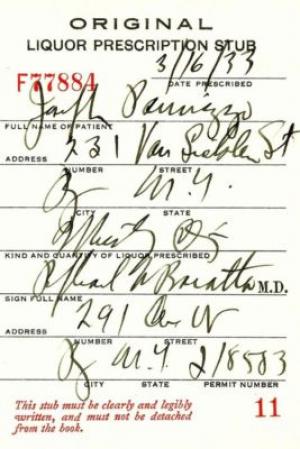 ORIGINAL
LIQUOR PRESCRIPTION STUB
3/16/33
F77884 DATE PRESCRIBED
Joseph
FULL NAME OF PATIENT
231 Van Siclen St
ADDRESS NUMBER STREET
N.Y.
CITY STATE
KIND AND QUANTITY OF LIQUOR PRESCRIBED
M.D.
SIGN FULL NAME
291 Ave W
ADDRESS
NUMBER STREET
N.Y. 218583
CITY STATE PERMIT NUMBER
This stub must be clearly and legibly
written, and must not be detached
from the book.
11